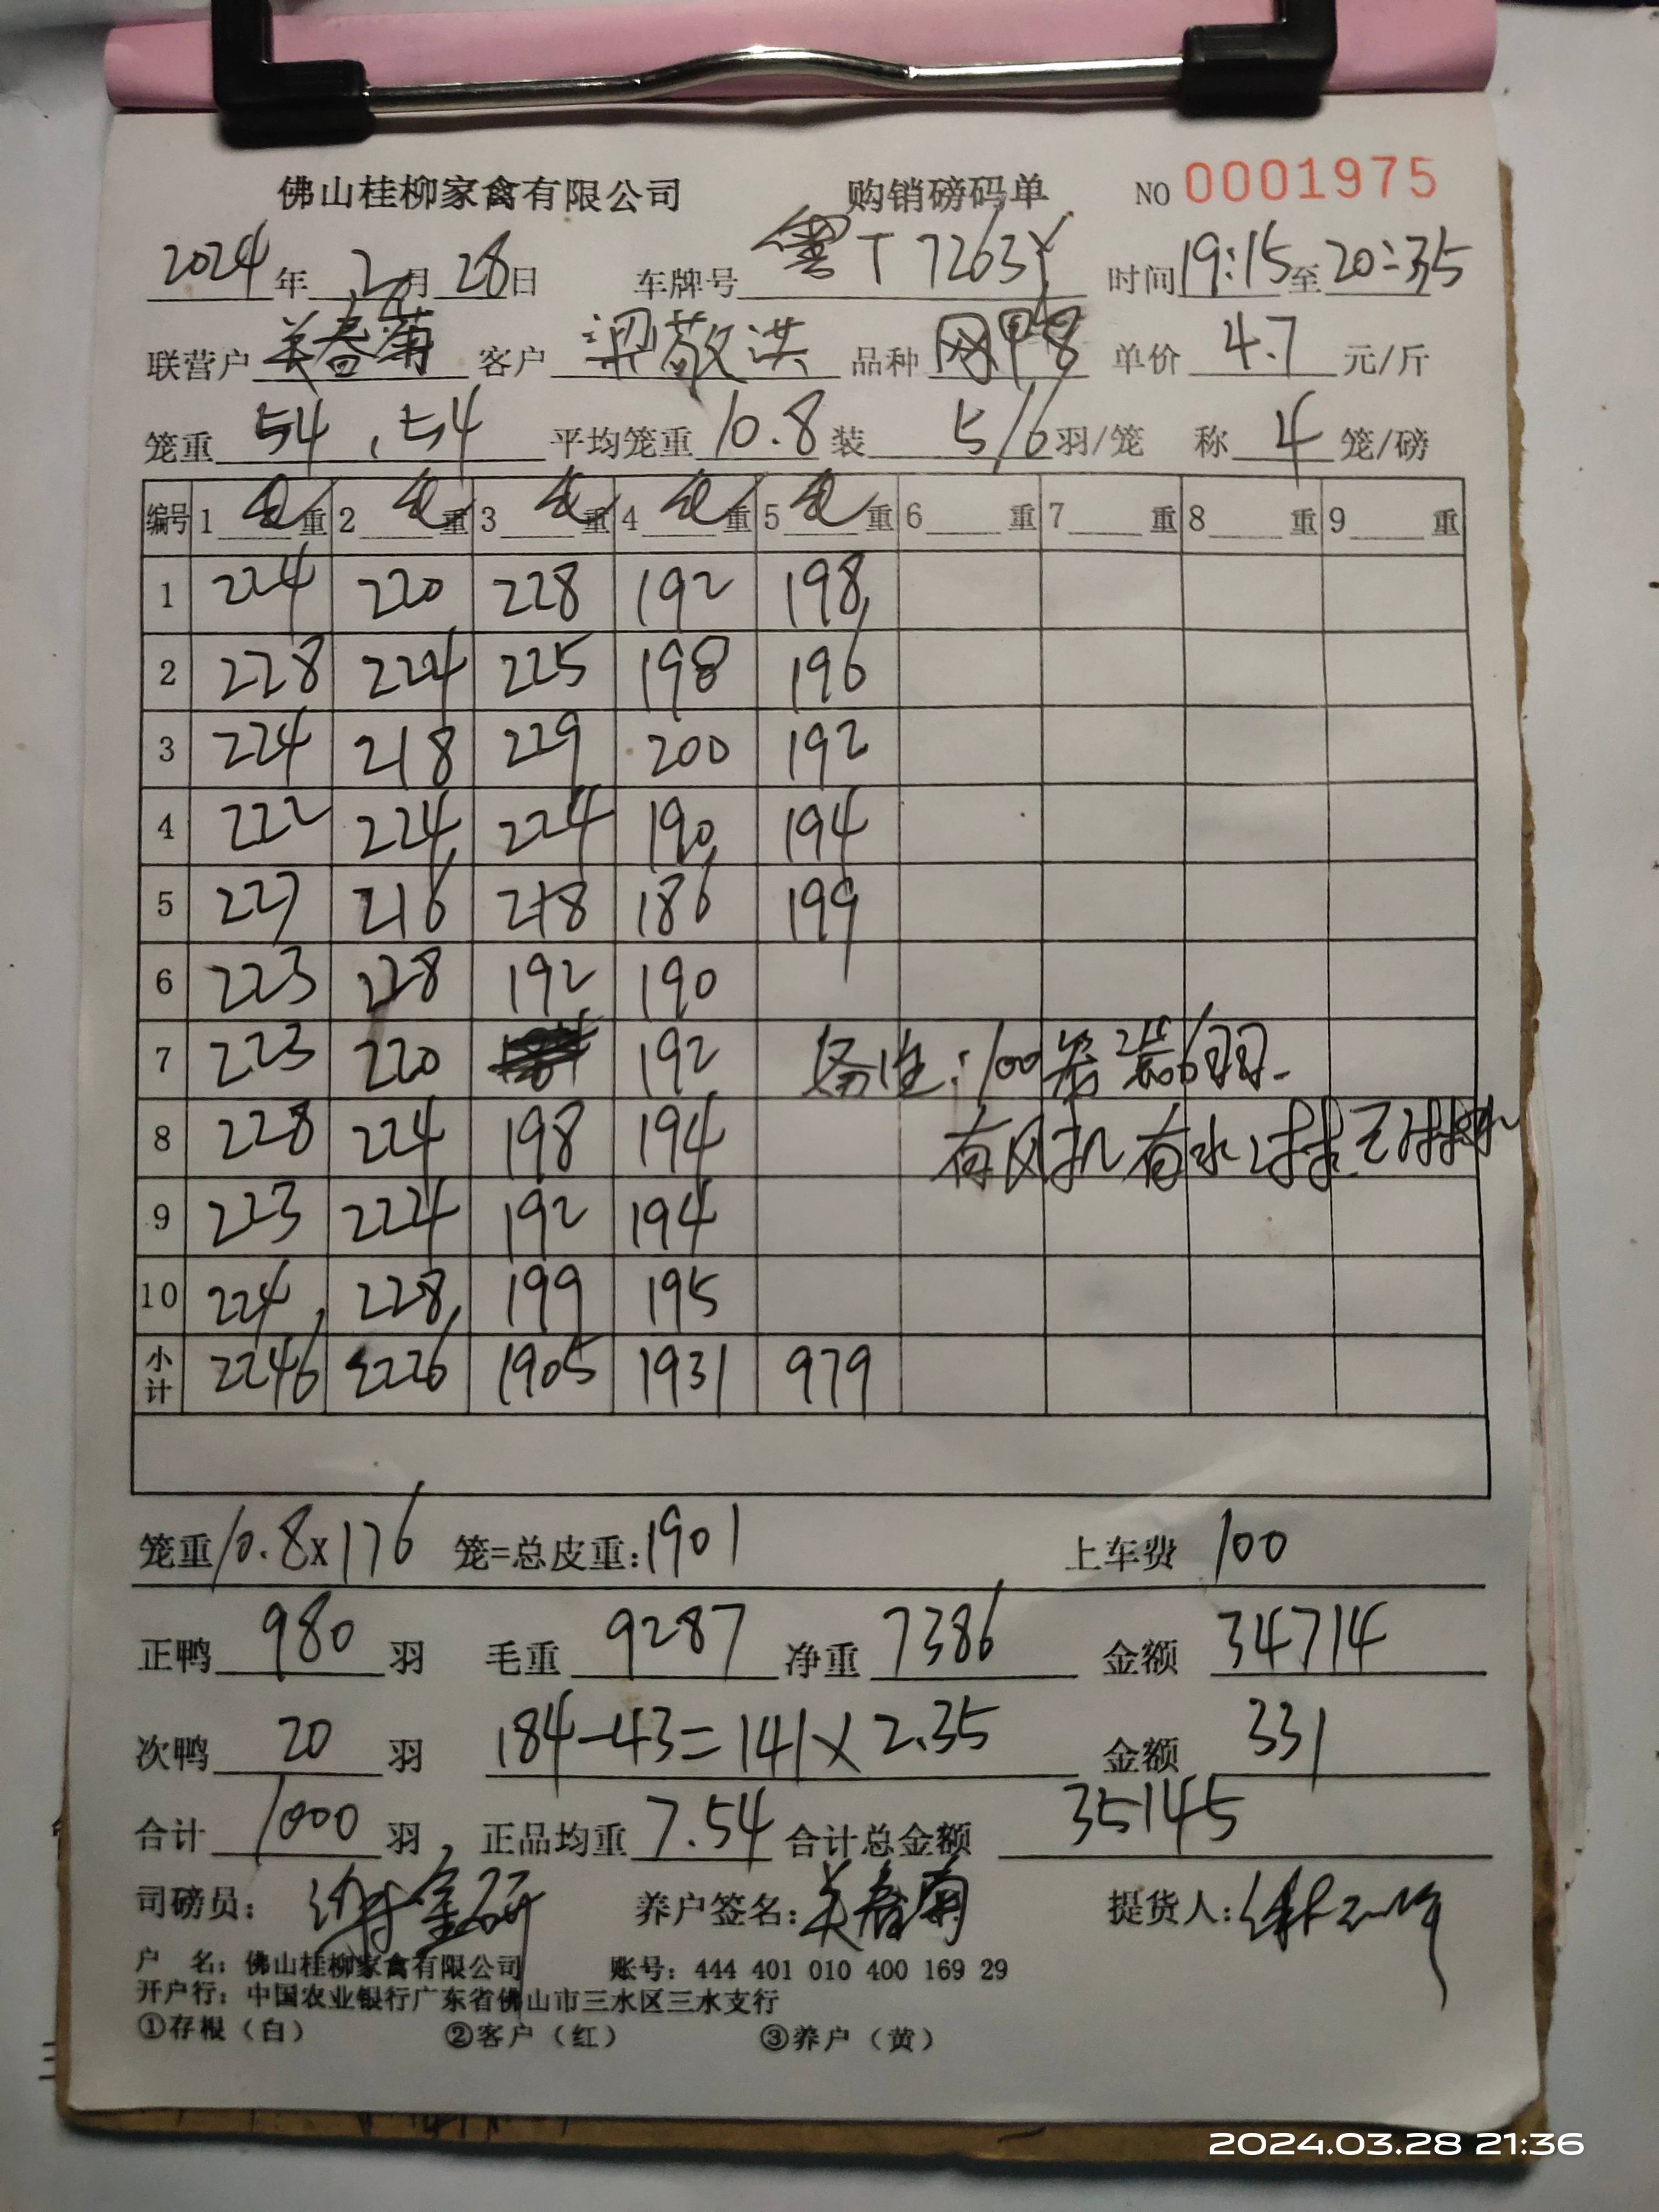 佛山桂柳家禽有限公司 购销磅码单 NO 0001975
2024年 2月 28日 车牌号 粤T 7263 时间 19:15至20:35
联营户 关春菊 客户 梁敬洪 品种 单价 4.7 元/斤
笼重 54,54 平均笼重 10.8 装 5/6 羽/笼 称 4 笼/磅
编号 1 重 2 重 3 重 4 重 5 重 6 重 7 重 8 重 9 重
1 224 220 228 192 198
2 228 224 225 198 196
3 224 218 229 200 192
4 222 224 224 190 194
5 227 216 218 186 199
6 223 228 192 190
7 223 220 192 备注:100笼装6羽.
8 228 224 198 194 有风机有水
9 223 224 192 194
10 224 228 199 195
小计 2246 2226 1905 1931 979
笼重 10.8x176 笼=总皮重:1901 上车费 100
正鸭 980 羽 毛重 9287 净重 7386 金额 34714
次鸭 20 羽 184-43=141×2.35 金额 331
合计 1000 羽, 正品均重 7.54 合计总金额 35145
司磅员: 养户签名:关春菊 提货人:
户 名:佛山桂柳家禽有限公司 账号:444 401 010 400 169 29
开户行:中国农业银行广东省佛山市三水区三水支行
①存根(白) ②客户(红) ③养户(黄)
2024.03.28 21:36